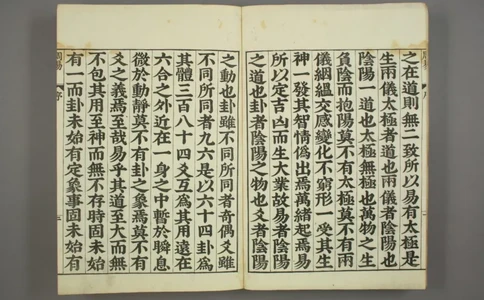 之在道則無二致所以易有太極是
生兩儀太極者道也兩儀者陰陽也
陰陽一道也太極無極也萬物之生
負陰而抱陽莫不有太極莫不有兩
儀絪縕交感變化不窮形一受其生
神一發其智情偽出焉萬緒起焉易
所以定吉凶而生大業故易者陰陽
之道也卦者陰陽之物也爻者陰陽
之動也卦雖不同所同者奇偶爻雖
不同所同者九六是以六十四卦爲
其體三百八十四爻互爲其用遠在
六合之外近在一身之中暫於瞬息
微於動靜莫不有卦之象焉莫不有
爻之義焉至哉易乎其道至大而無
不包其用至神而無不存時固未始
有一而卦未始有定象事固未始有
周易 序